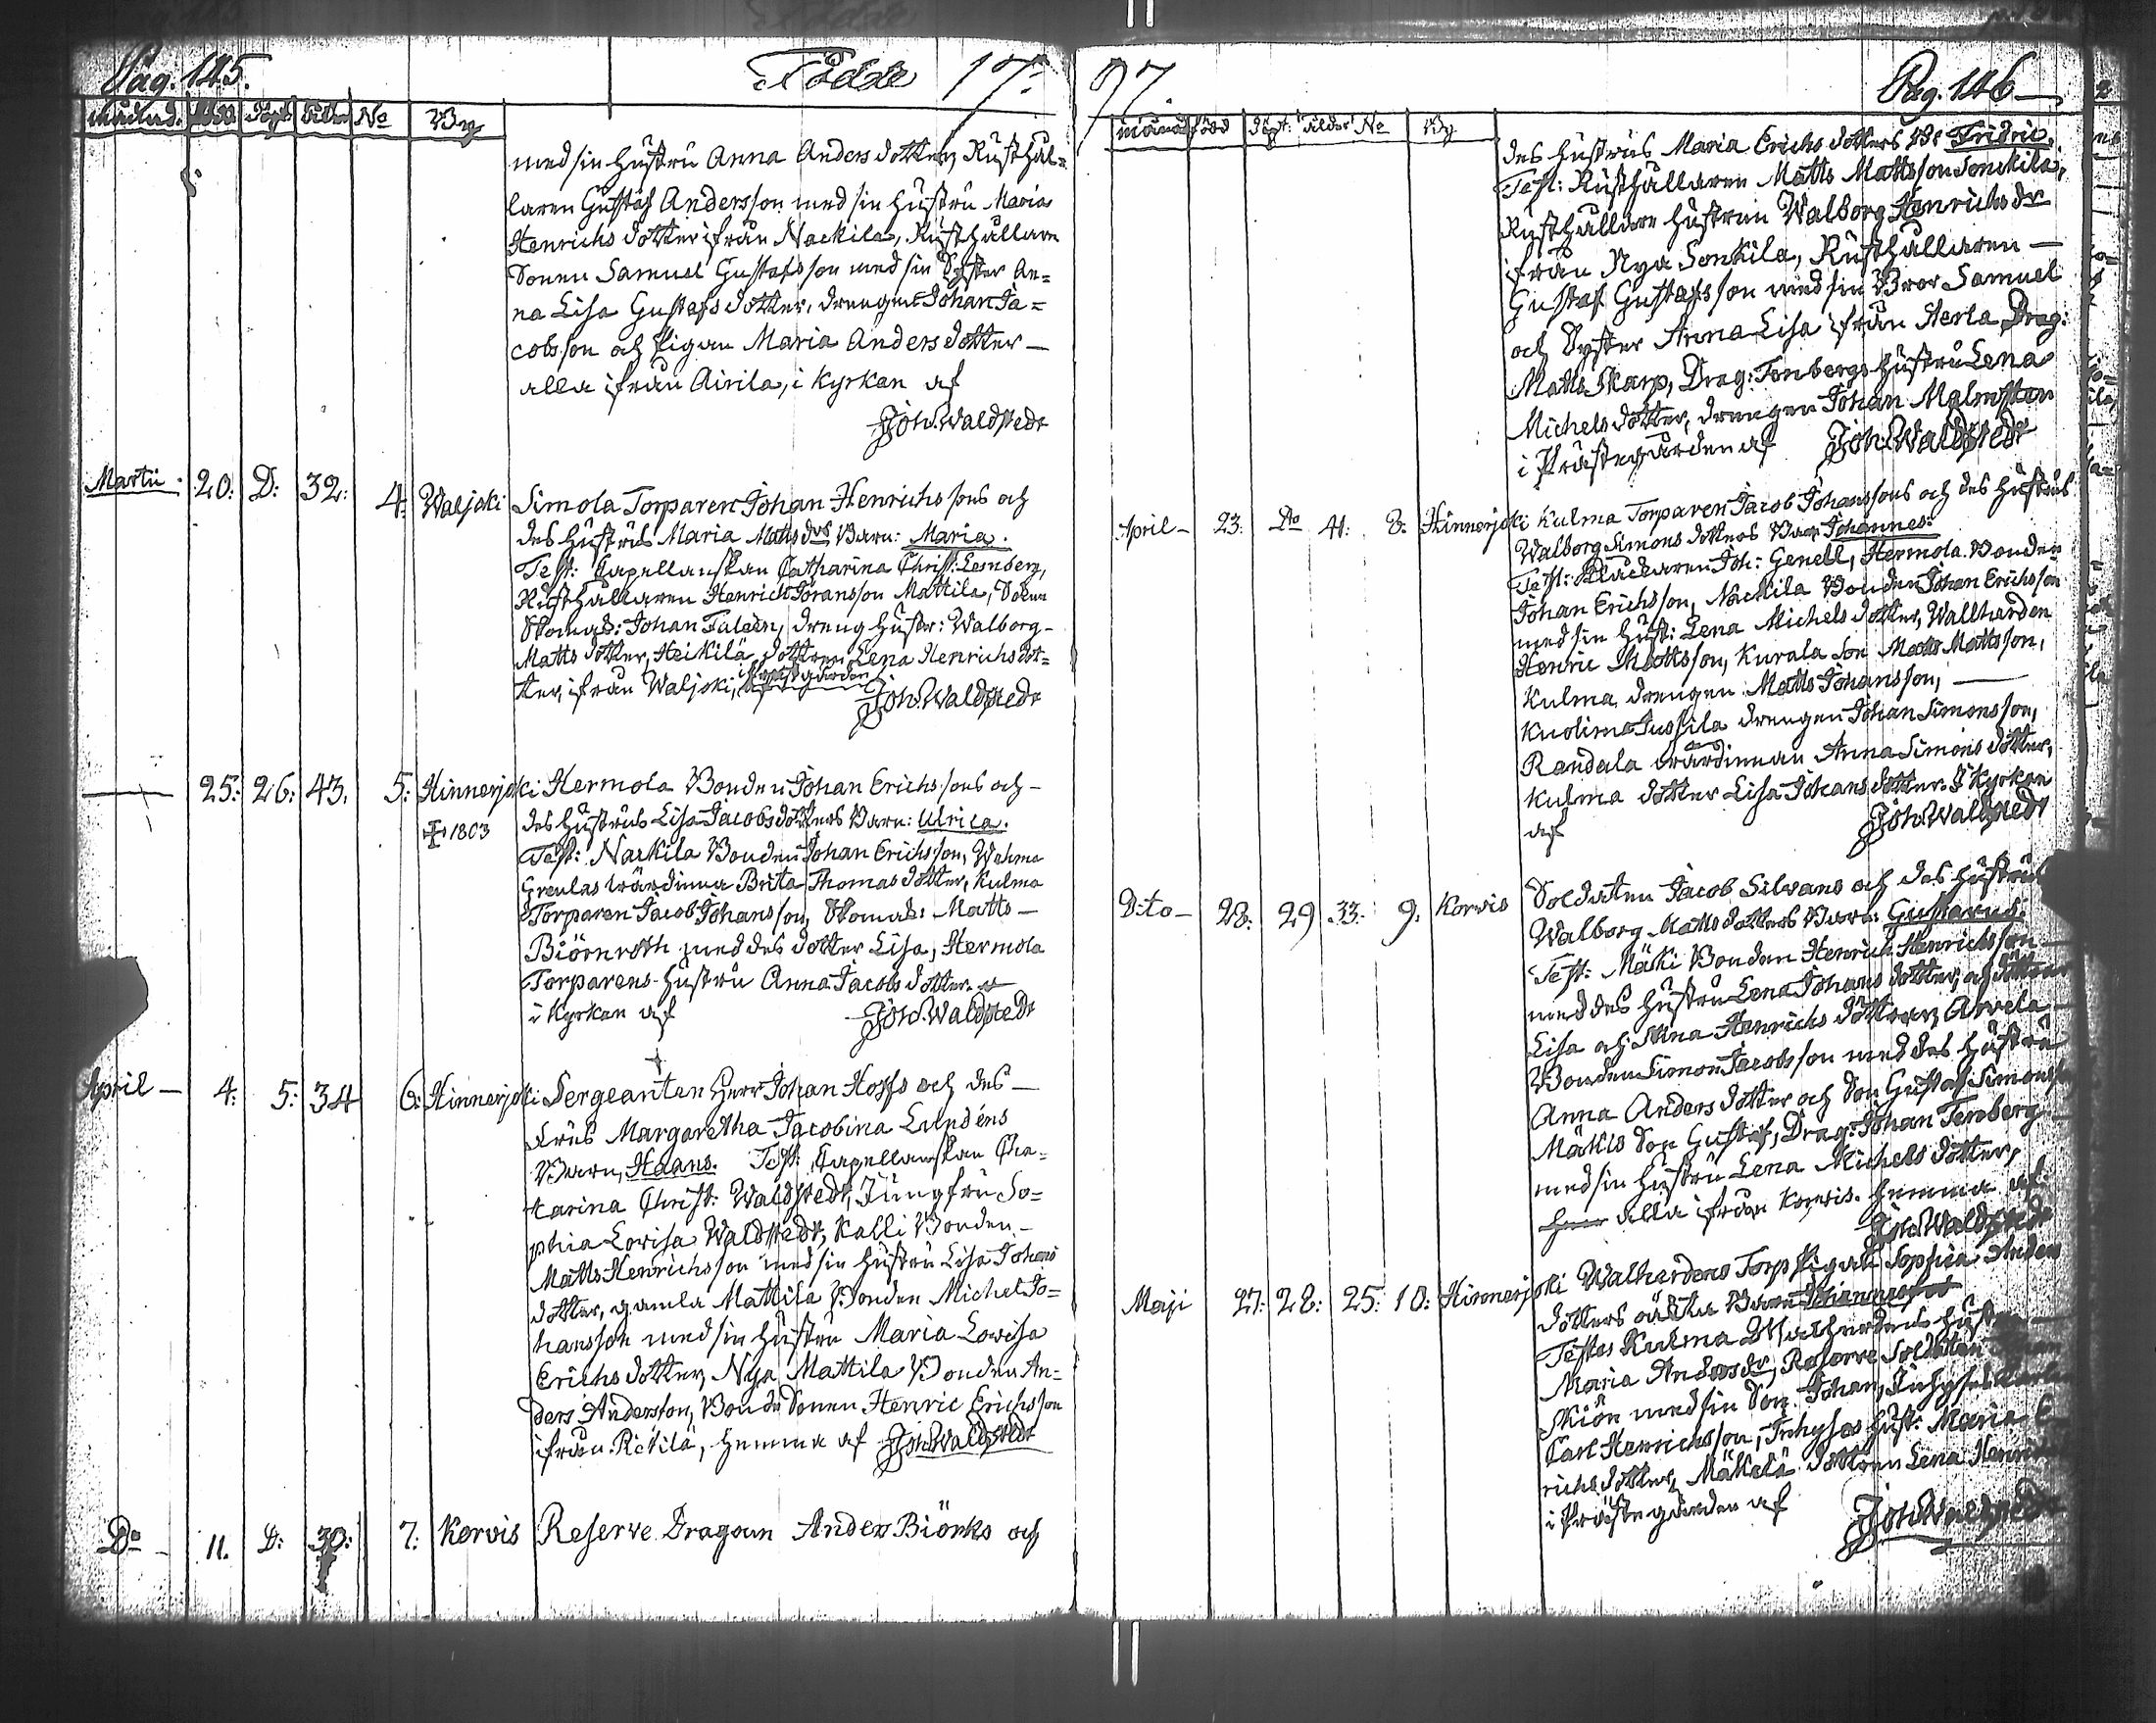 Pag. 145. Födde 17
Månad. Född Döpt Ålder No By
med sin hustru Anna Anders dotter, Rusthål=
laren Gustaf Andersson med sin hustru Maria
Henrichs dotter ifrån Nackila, Rusthållare
Sonen Samuel Gustafsson med sin Syster An=
na Lisa Gustafs dotter, drengen Johan Ja=
cobsson och Pigan Maria Anders dotter —
alla ifrån Airila, i Kyrkan af
Joh. Waldstedt
Martii 20: D: 32: 4: Waljoki Simola Torparen Johan Henrichssons och
des hustrus Maria Matts drs Barn: Maria.
Test: Capellanskan Catharina Christ:
Rusthållaren Henrich Göransson Mattila, Sone
Johan Taleen, dreng hustr: Walborg
Matts dotter, Heikilä dottren Lena Henrichs dot=
ter, ifrån Waljoki, i Prestgården af
Joh. Waldstedt
— 25: 26: 43. 5: Hinnerjoki Hermola Bonden Johan Erichssons och —
✝ 1803 des hustrus Lisa Jacobs dotters Barn: Ulrica.
Test: Nackila Bonden Johan Erichsson, Wahma
Greulas wärdinna Brita Thomas dotter, Kulma
Torparen Jacob Johansson, Skomak: Matts —
Biörnroth med des dotter Lisa, Hermola
Torparens hustru Anna Jacobs dotter
i Kyrkan af Joh. Waldstedt
April — 4: 5: 34 6: Hinnerjoki Sergeanten Herr Johan Hoffs och des —
Frus Margaretha Jacobina Lundéns
Barn, Haans. Test: Capellanskan Cha=
tarina Christ: Waldstedt, Jungfru So=
phia Lovisa Waldstedt, Kalli Bonden —
Matts Henrichsson med sin hustru Lisa Johans
dotter, gamla Mattila Bonden Michel Jo=
hansson med sin hustru Maria Lovisa
Erichs dotter, Nya Mattila Bonden An=
ders Andersson, Bonde Sonen Henric Erichsson
ifrån Rickilä, hemma af Joh. Waldstedt
Do — 11. D: 30: 7: Korvis Reserve Dragoun Anders Biörks och
97. Pag. 146 —
Månad född döpt: ålder No By
des hustrus Maria Erichs dotters Bn Fridric.
Test: Rusthållaren Matts Mattsson Sonckila,
Rusthållare hustrun Walborg Henrichs dr
ifrån Nya Sonkila, Rusthållaren —
Gustaf Gustafsson med sin Bror Samuel
och Syster Anna Lisa ifrån Herla Drag:
Matts Skarp, Drag: Tenbergs hustru Lena
Michels dotter, drengen Johan Malmsten
i Prästegården af Joh. Waldstedt
April — 23: Do 41: 8: Hinnerjoki Kulma Torparen Jacob Johanssons och des hustrus
Walborg Simons dotters Barn Johannes:
Test: Klåckaren Joh: Genell, Hermola Bonden
Johan Erichsson, Nackila Bonden Johan Erichsson
med sin hust: Lena Michels dotter, Wallharden
Henric Mattsson, Kurala Son Matts Mattsson,
Kulma drengen Matts Johansson, —
Kuolima Jussila drengen Johan Simonsson,
Randala wärdinnan Anna Simons dotter,
Kulma dotter Lisa Johans dotter. I Kyrkan
af Joh. Waldstedt
Dito — 28: 29 33: 9. Korvis Soldaten Jacob Silvans och des hustrus
Walborg Matts dotters Barn: Gustavus.
Test: Mäki Bonden Henrich Henrichsson
med des hustru Lena Johans dotter, och döttrar
Lisa och Stina Henrichs döttrar, Arvela
Bonden Simon Jacobsson med des hustru
Anna Anders dotter och Son Gustaf Simonss
Mäkis Son Gustaf, Drag: Johan Tenberg
med sin hustru Lena Michels dotter,
alla ifrån Korvis. hemma af
Joh. Waldstedt
Maji 27: 28: 25: 10: Hinnerjoki Walherdens Torp Pigan Sophia Anders
dotters oäkta Barn Johannes
Testes Kulma Walherdens hustru
Maria Anders dr, Reserve Soldaten Johan
Skiön med sin Son Johan,
Carl Henrichsson, hust: Maria E
richs dotter, Mäkelä dottren Lena Henrichs
i Prästegården af Joh. Waldstedt